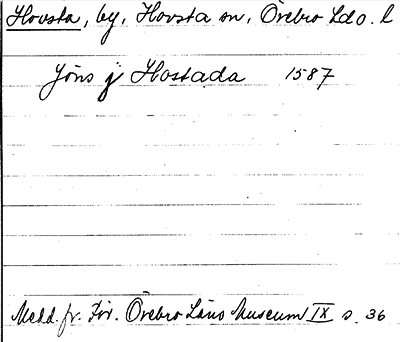 Hovsta, by, Hovsta sn, Örebro Ldo. l
Jöns j Hostada 1587
Medd. fr. För. Örebro Läns Museum IX s. 36